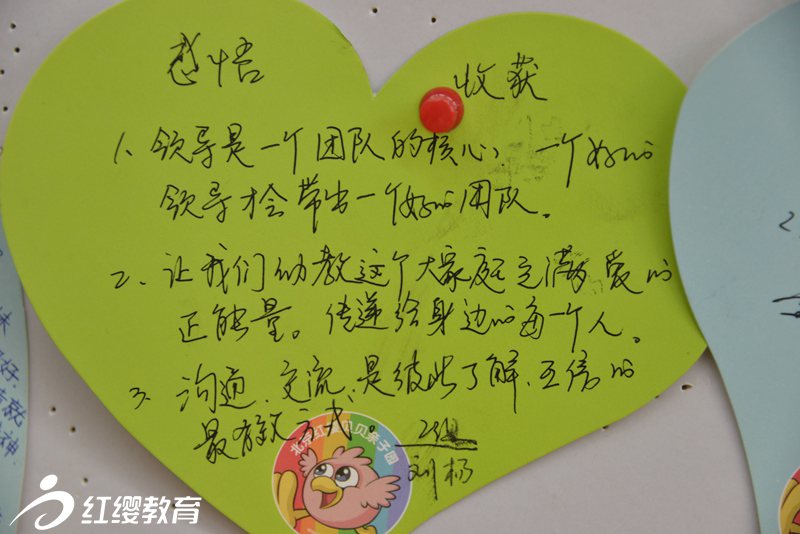 感悟 收获
1、领导是一个团队的核心，一个好的
领导才会带出一个好的团队。
2、让我们幼教这个大家庭充满爱的
正能量。传递给身边的每一个人。
3、沟通、交流、是彼此了解、互信的
最有效方式。
刘杨
北京红缨贝贝亲子园
红缨教育